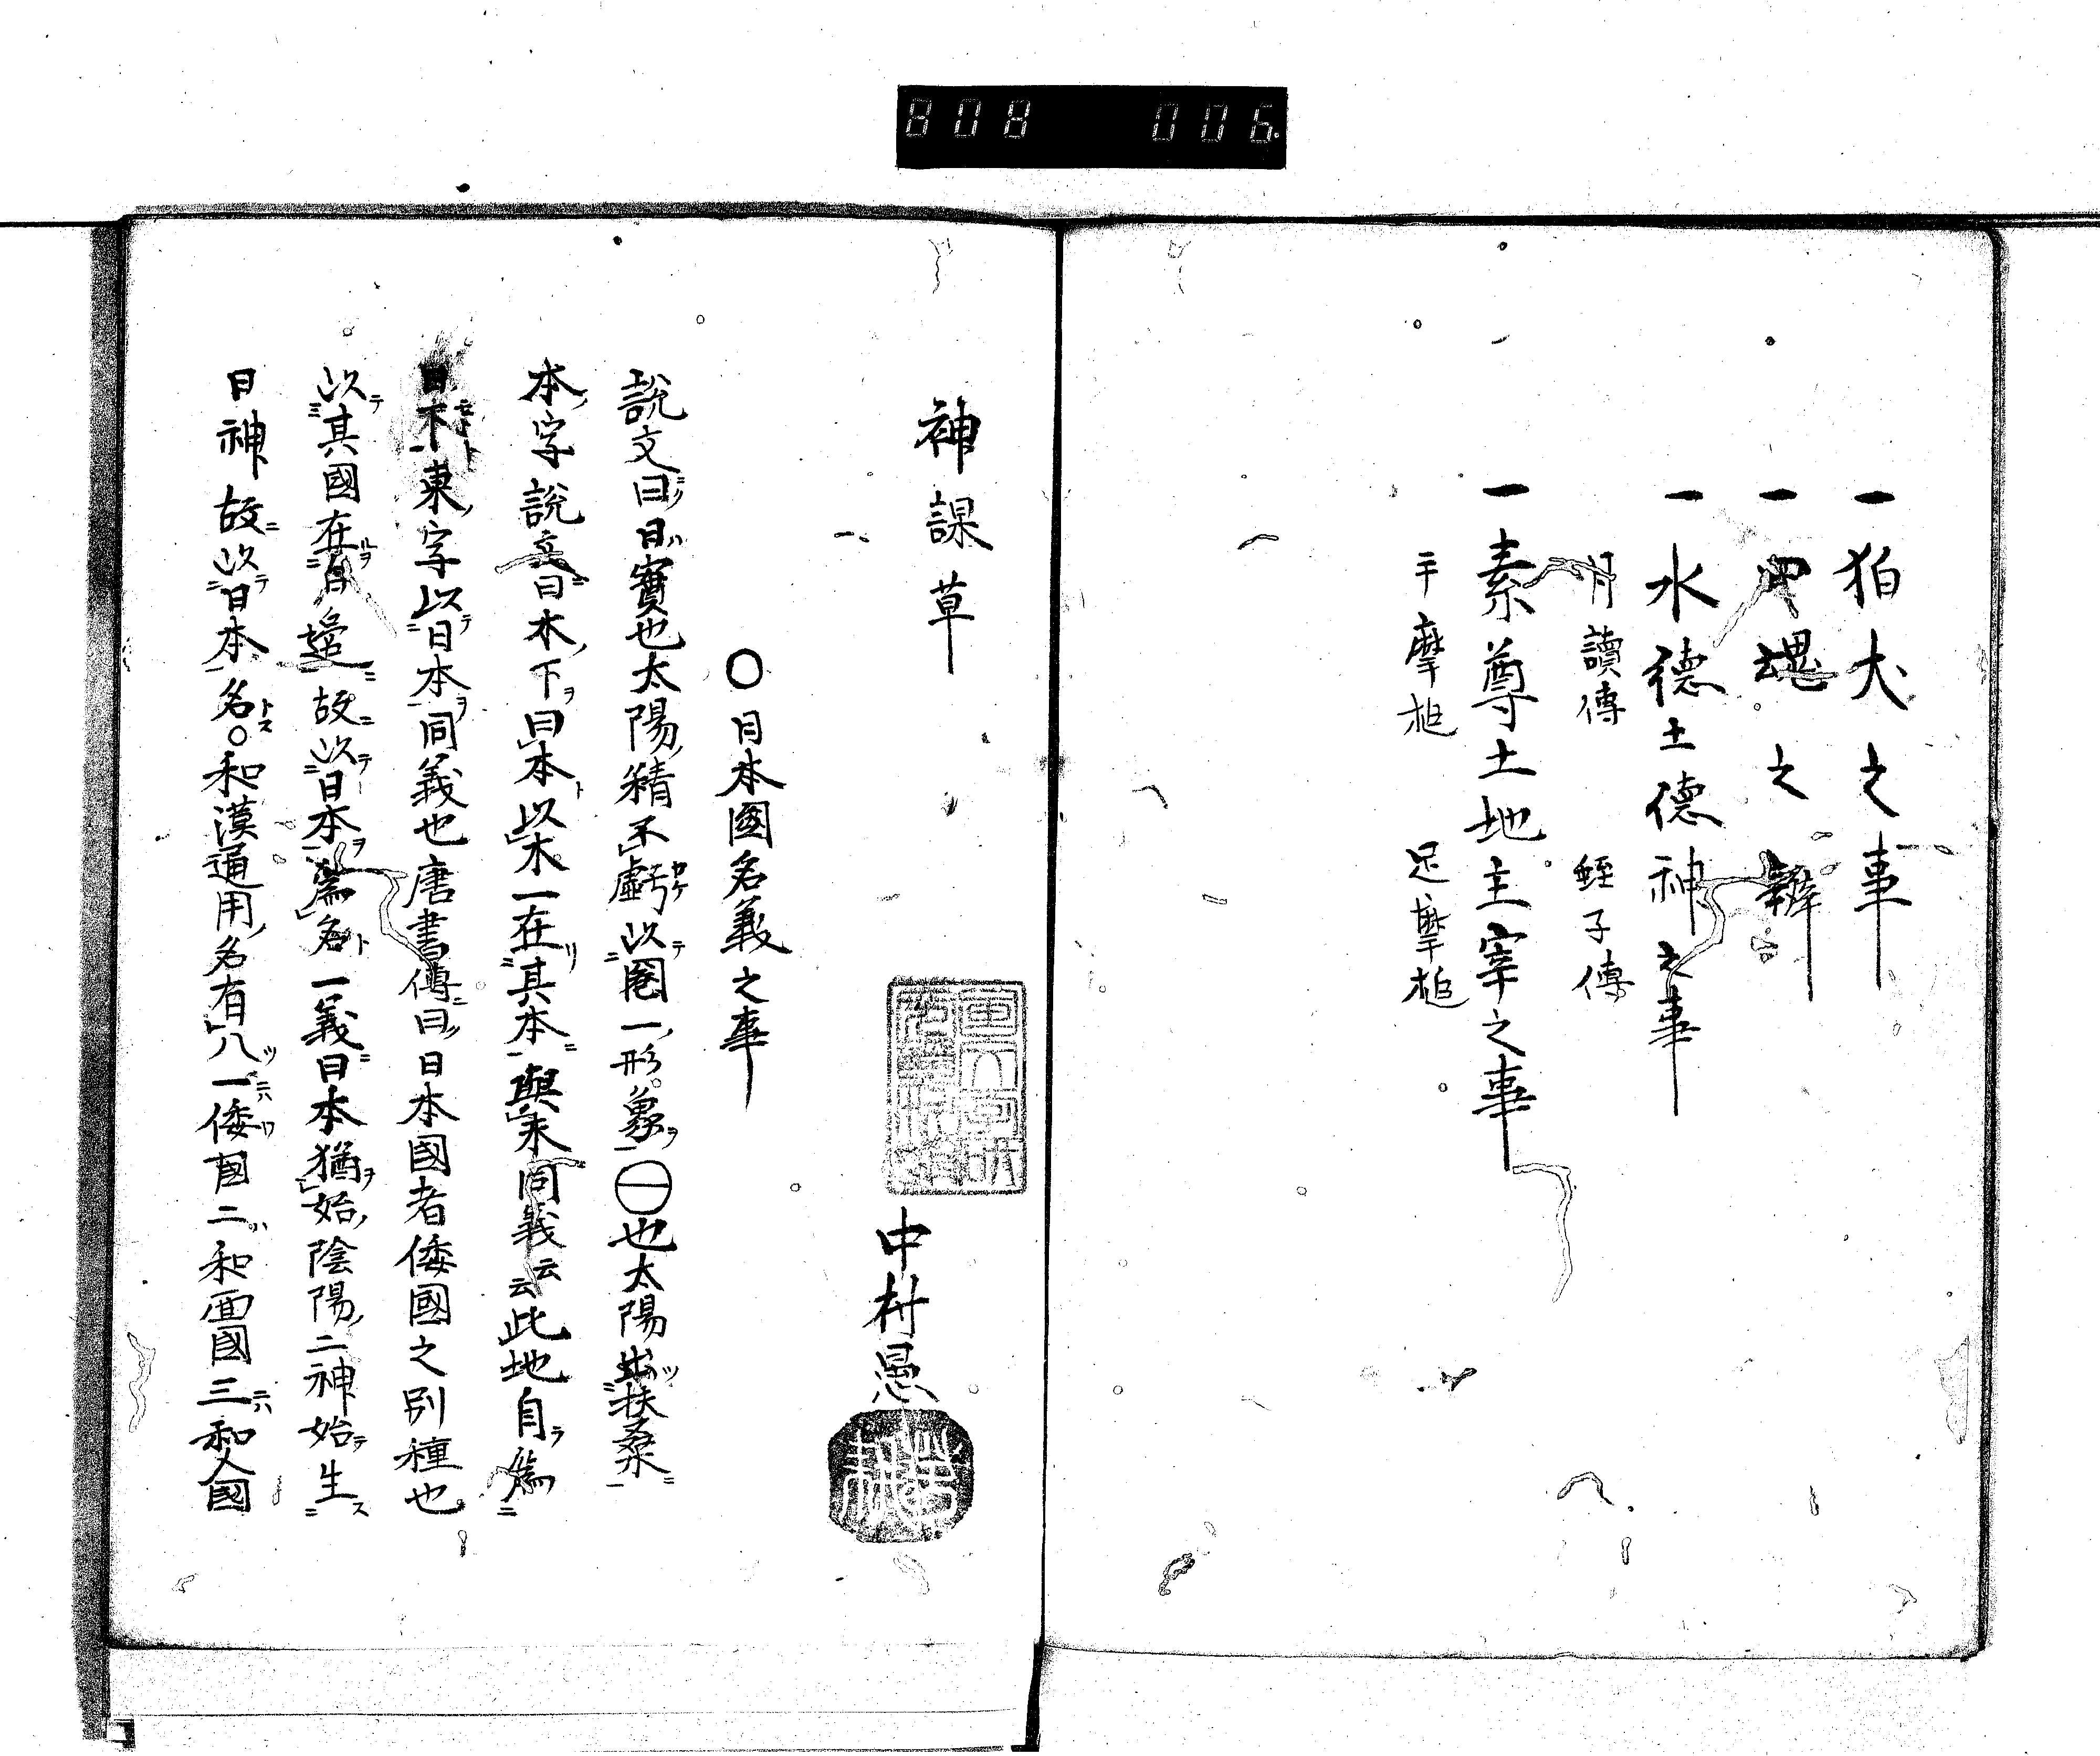 808 006.
一狛犬之事
一四魂之辨
一水德土德神之事
月讀傳 蛭子傳
一素尊土地主宰之事
手摩槌 足摩槌
神課草
中村愚
○日本國名義之事
説文曰日實也太陽精不虧以圏一形象㊀也太陽出扶桑
本字説文曰木下曰本以木一在其本與末同義云云此地自爲
日下東字以日本同義也唐書傳曰日本國者倭國之別種也
以其國在日邊故以日本爲名一義日本猶始陰陽二神始生
日神故以日本名○和漢通用名有八一倭國二和面國三和人國